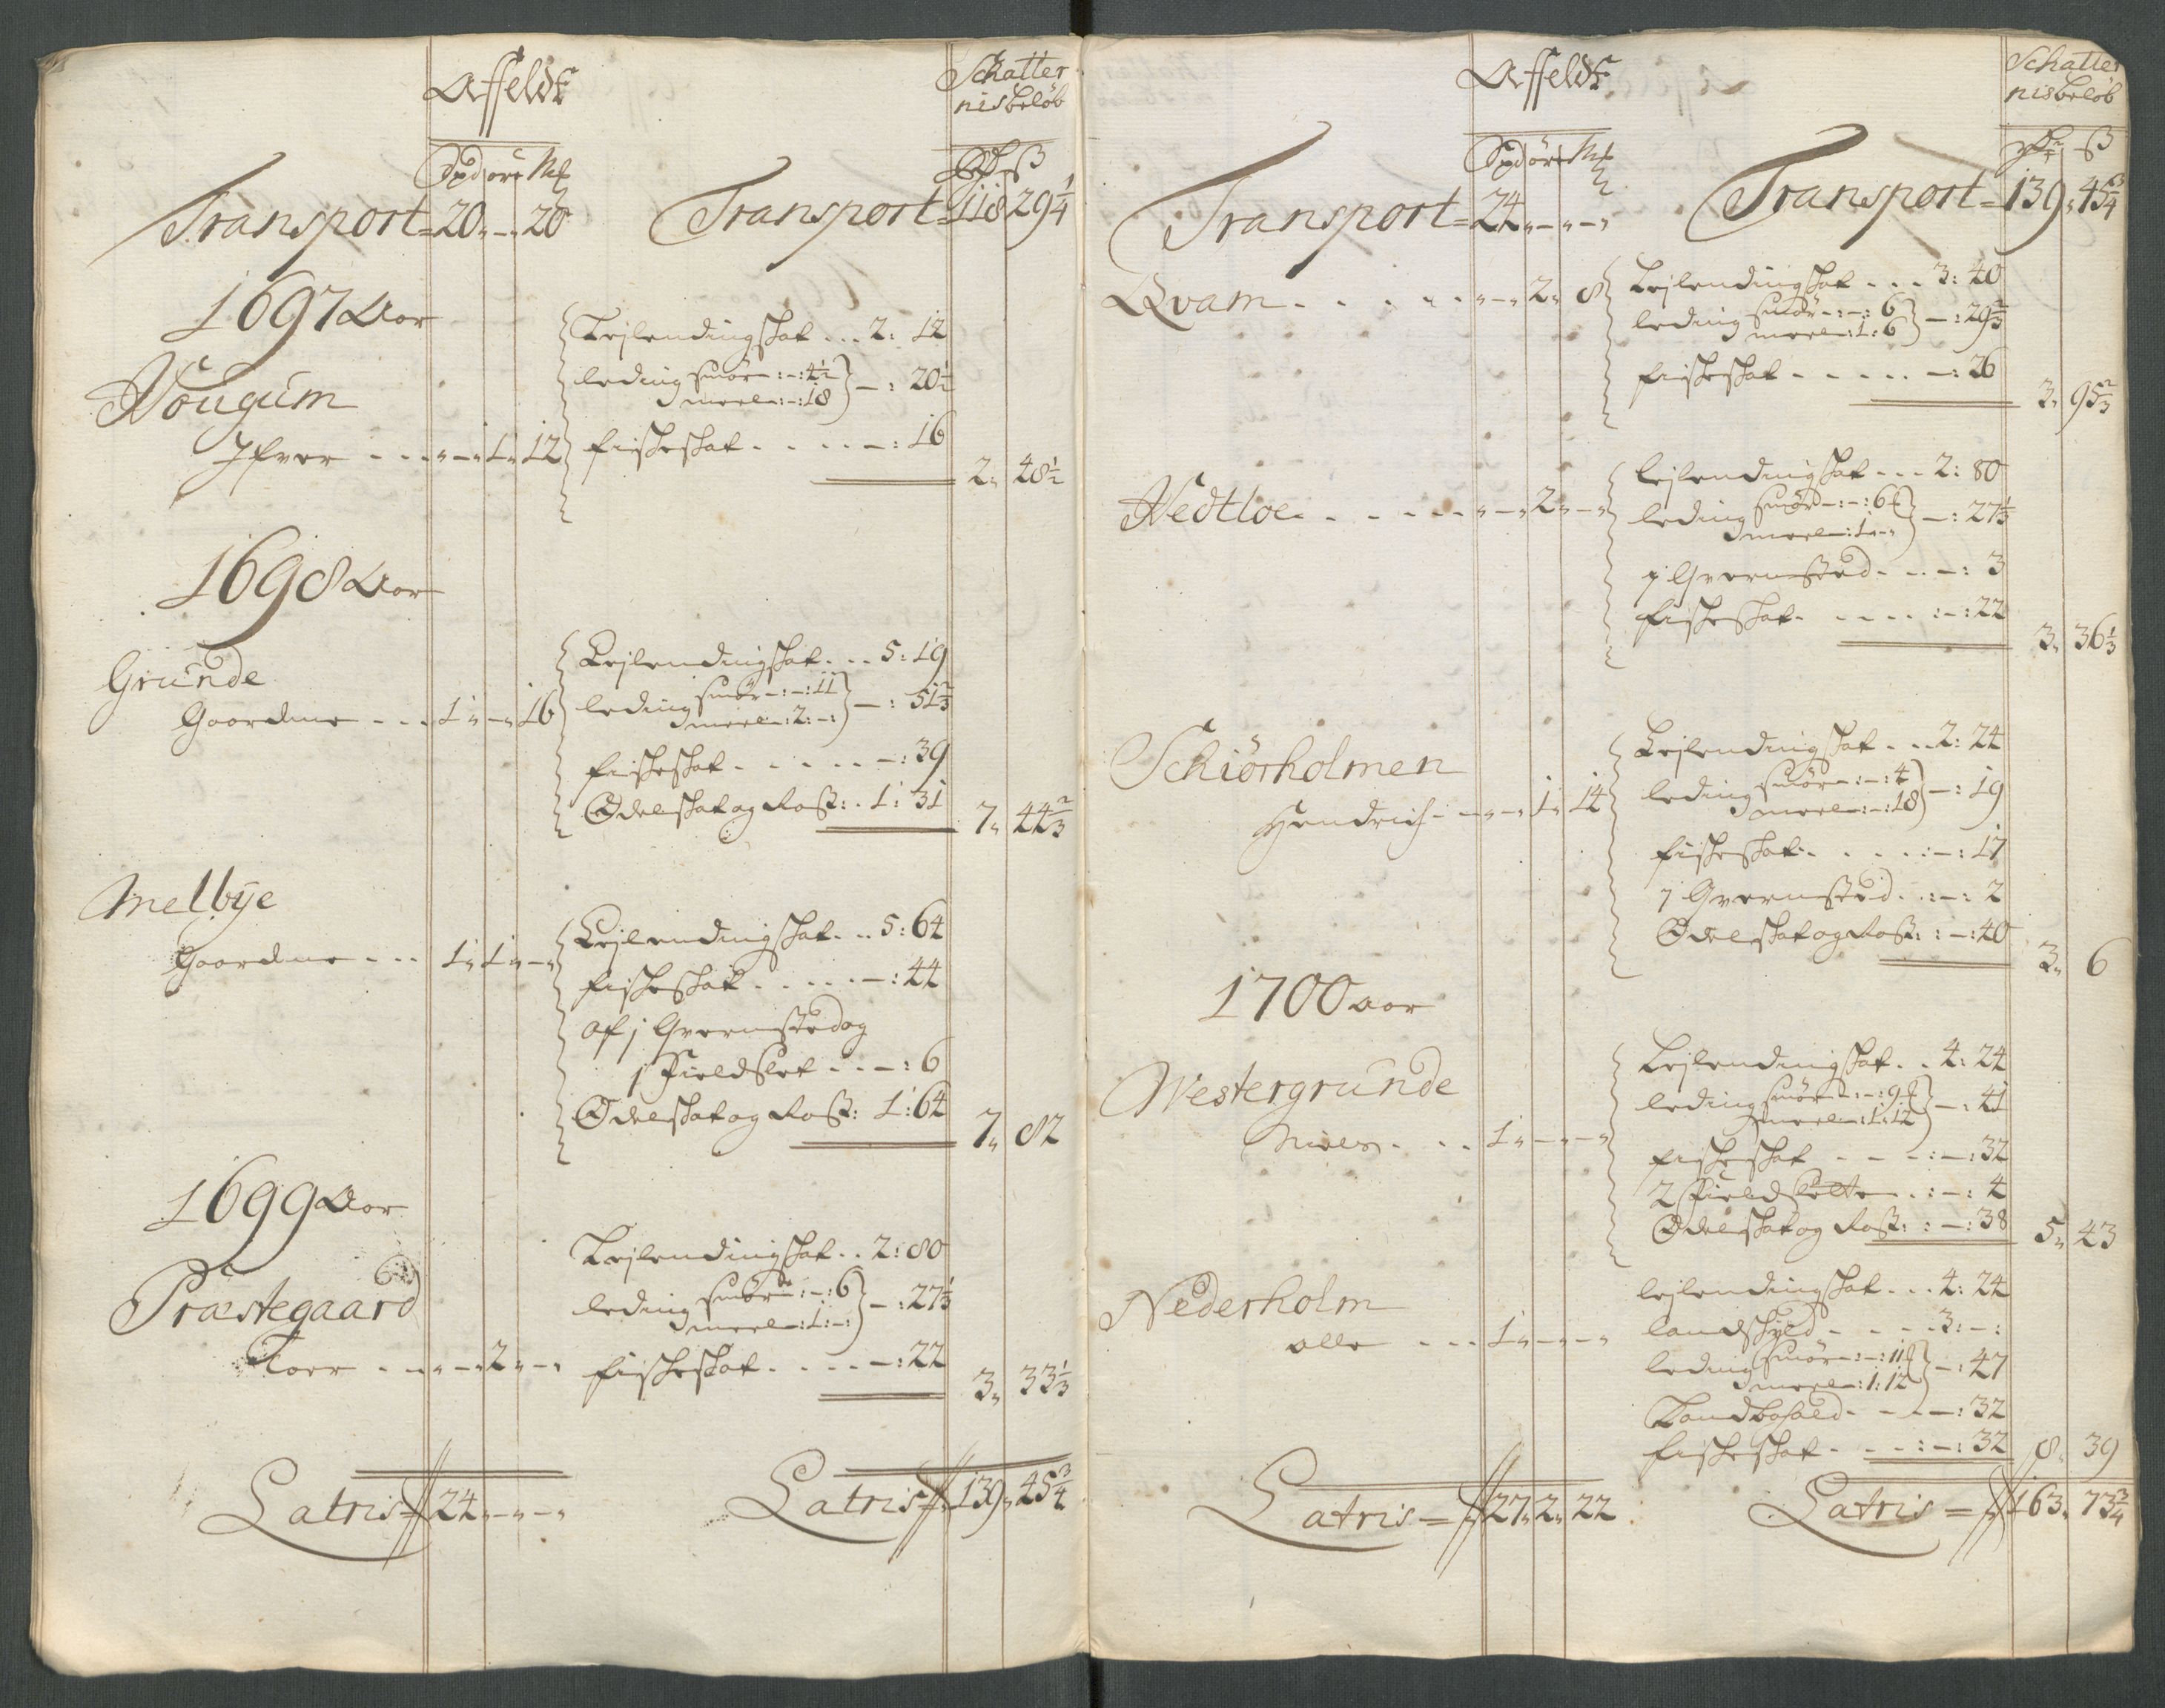 Affeldt
Schatter
nis beløb
Spd ører Mk
Rdr ß
Transport = 20 „ — „ 20
Transport = 118 29 1/4
1697 Aar
Nougum
Ifver - - - „ — „ 1 „ 12
Leylendingschat . . . 2: 12
leding smør — : — : 4 1/2
meel — : — : 18 — : 20 1/2
fischeschat . . . . — : 16
2 „ 48 1/2
1698 Aar
Grunde
Gaardene - - - 1 „ — „ 16
Leylendingschat . . . 5: 19
leding smør — : — : 11
meel — : 2: — : — : 51 2/3
fischeschat . . . . . — : 39
Odelschat og Rost: . 1: 31
7 „ 44 2/3
Melbye
Gaardene - - - 1 „ 1 „ — „
Leylendingschat . . 5: 64
fischeschat . . . . . — : 44
af j Qvernsted og
j Fieldslet . . . — : 6
Odelschat og Rost: 1: 64
7 „ 82
1699 Aar
Præstegaard
Toer - - „ — „ 2 „ — „
Leylendingschat . . 2: 80
leding smør — : — : 6
meel — : 1: — : — : 27 1/3
fischeschat . . . . — : 22
3 „ 33 1/3
Latris = 24 „ — „ — „
Latris = 139 „ 45 3/4
Affeldt
Schatter
nis beløb
Spd ører Mk
Rdr ß
Transport = 24 „ — „ — „
Transport = 139 „ 45 3/4
Qvam . . . . . „ — „ 2 „ 8
Leylendingschat . . . 3: 40
leding smør — : — : 6
meel — : 1: 6 — : 29 2/3
fischeschat . . . . . — : 26
3 „ 95 2/3
Nedtloe . . . . . „ — „ 2 „ — „
leylendingschat . . . 2: 80
leding smør — : — : 6
meel — : 1 — „ — : 27 1/3
j Qvernsted . . . — : 3
fischeschat . . . . : — : 22
3 „ 36 1/3
Schiørholmen
Hendrich - - „ — „ 1 „ 14
Leylendingschat . . . 2: 24
leding smør — : — : 4
meel — : — : 18 — : 19
fischeschat . . . . : — : 17
j Qvernsted . . : — : 2
Odelschat og Rost: : — : 40
3 „ 6
1700 aar
Westergrunde
Niels . . . 1 „ — „ — „
Leylendingschat . . 4: 24
leding smør — : — : 9
meel — : 1: 12 — : 41
fischeschat - - - : — : 32
2 Fieldsletter . . : — : 4
Odelschat og Rost: : — : 38
5 „ 43
Nederholm
olle - - - 1 „ — „ — „
leylendingschat . . . 4: 24
landschyld . . . . 3: — :
leding smør — : — : 11
meel — : 1: 12 — : 47
Landbohold - - - — : 32
fischeschat . . . : — : 32
8 „ 39
Latris = 27 „ 2 „ 22
Latris = 163 „ 73 3/4